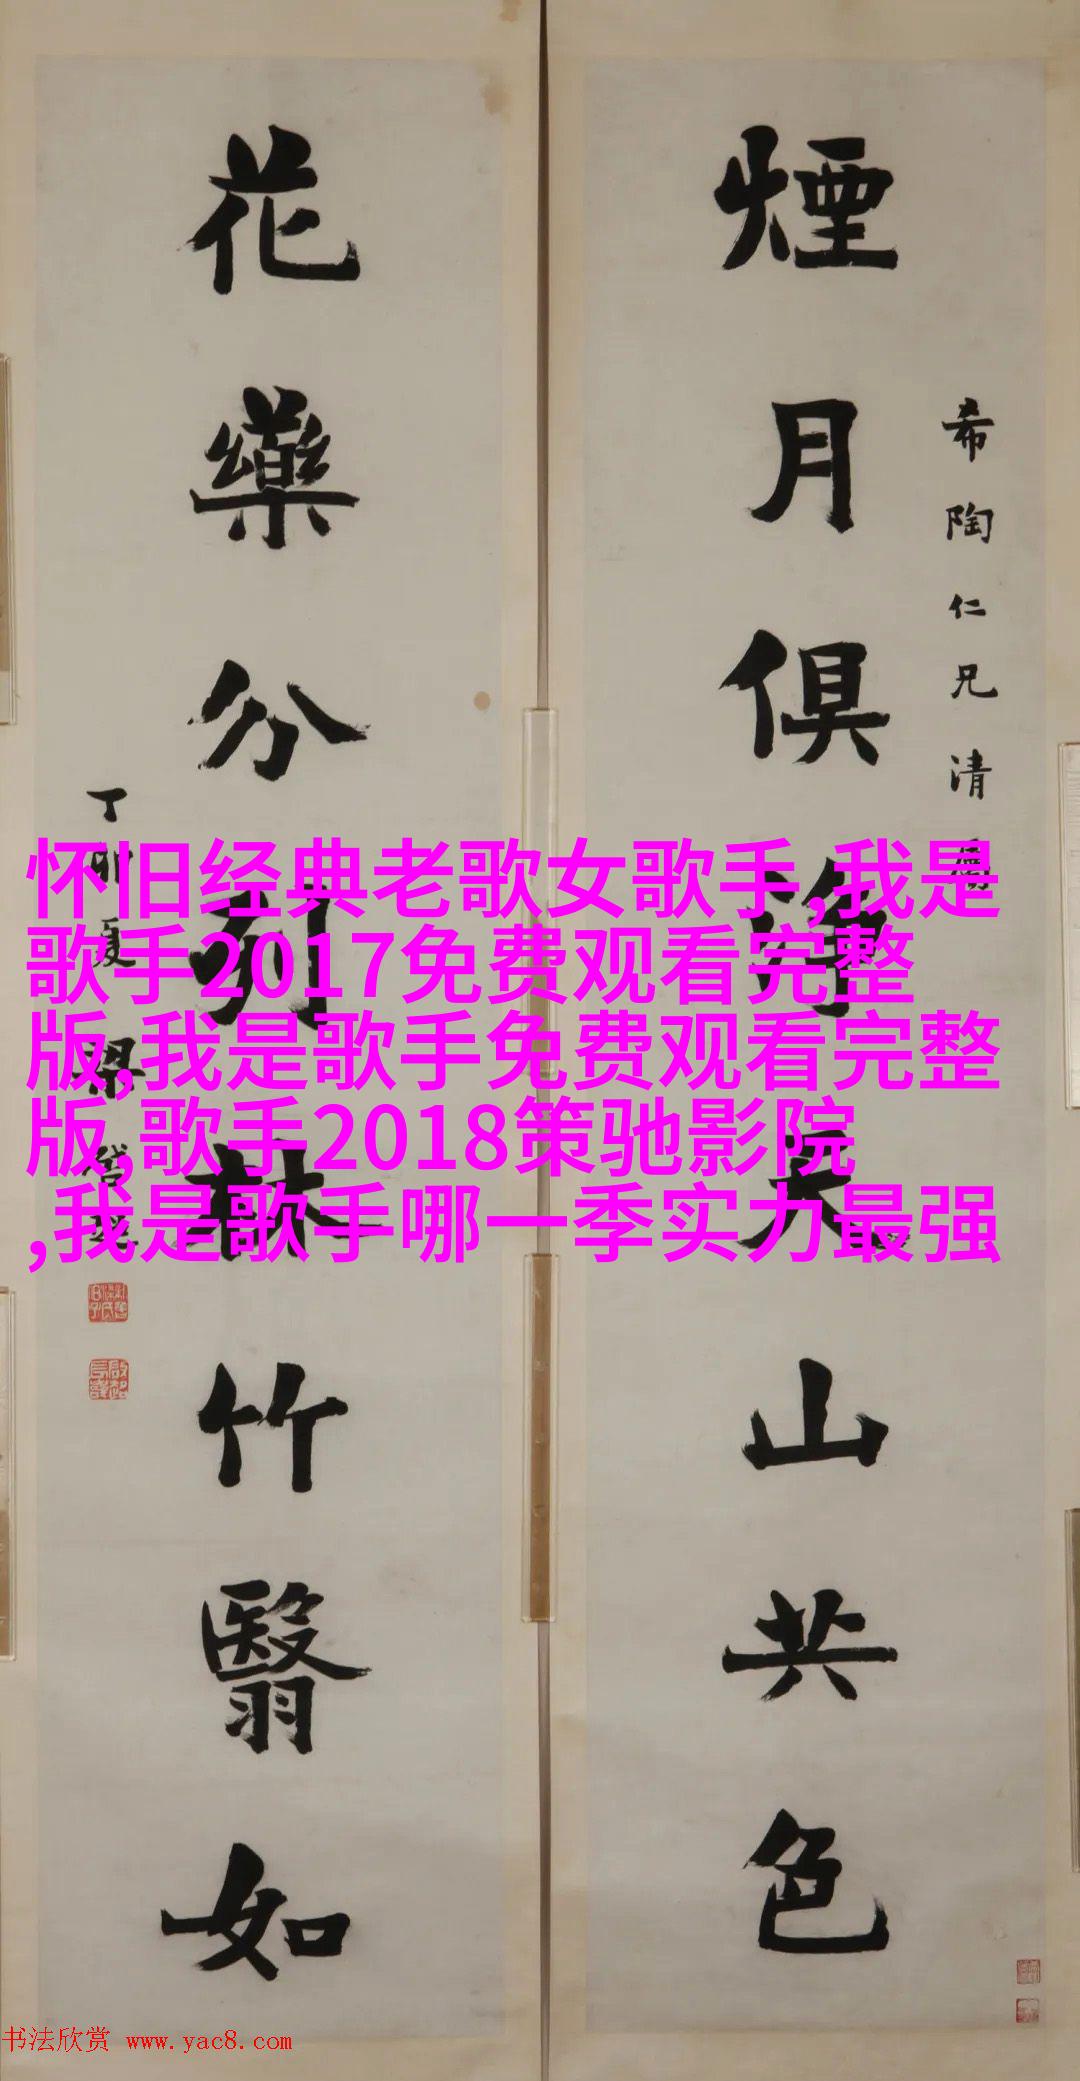 煙月俱淨天山共色
希陶仁兄清屬
花藥分列林竹翳如
丁卯夏梁啓超
怀旧经典老歌女歌手,我是
歌手2017免费观看完整
版,我是歌手免费观看完整
版,歌手2018策驰影院
,我是歌手哪一季实力最强
书法欣赏 www.yac8.com